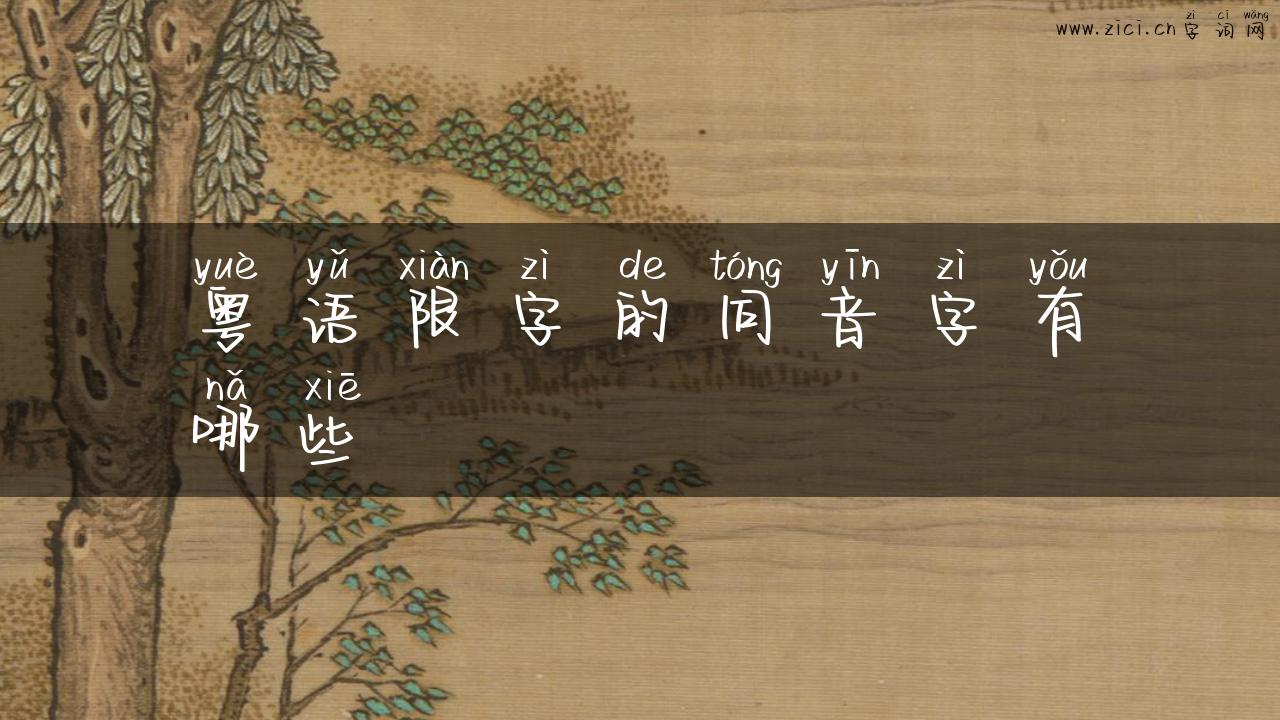 zì cí wǎng
www.zici.cn 字 词 网
yuè yǔ xiàn zì de tóng yīn zì yǒu
粤 语 限 字 的 同 音 字 有
nǎ xiē
哪 些